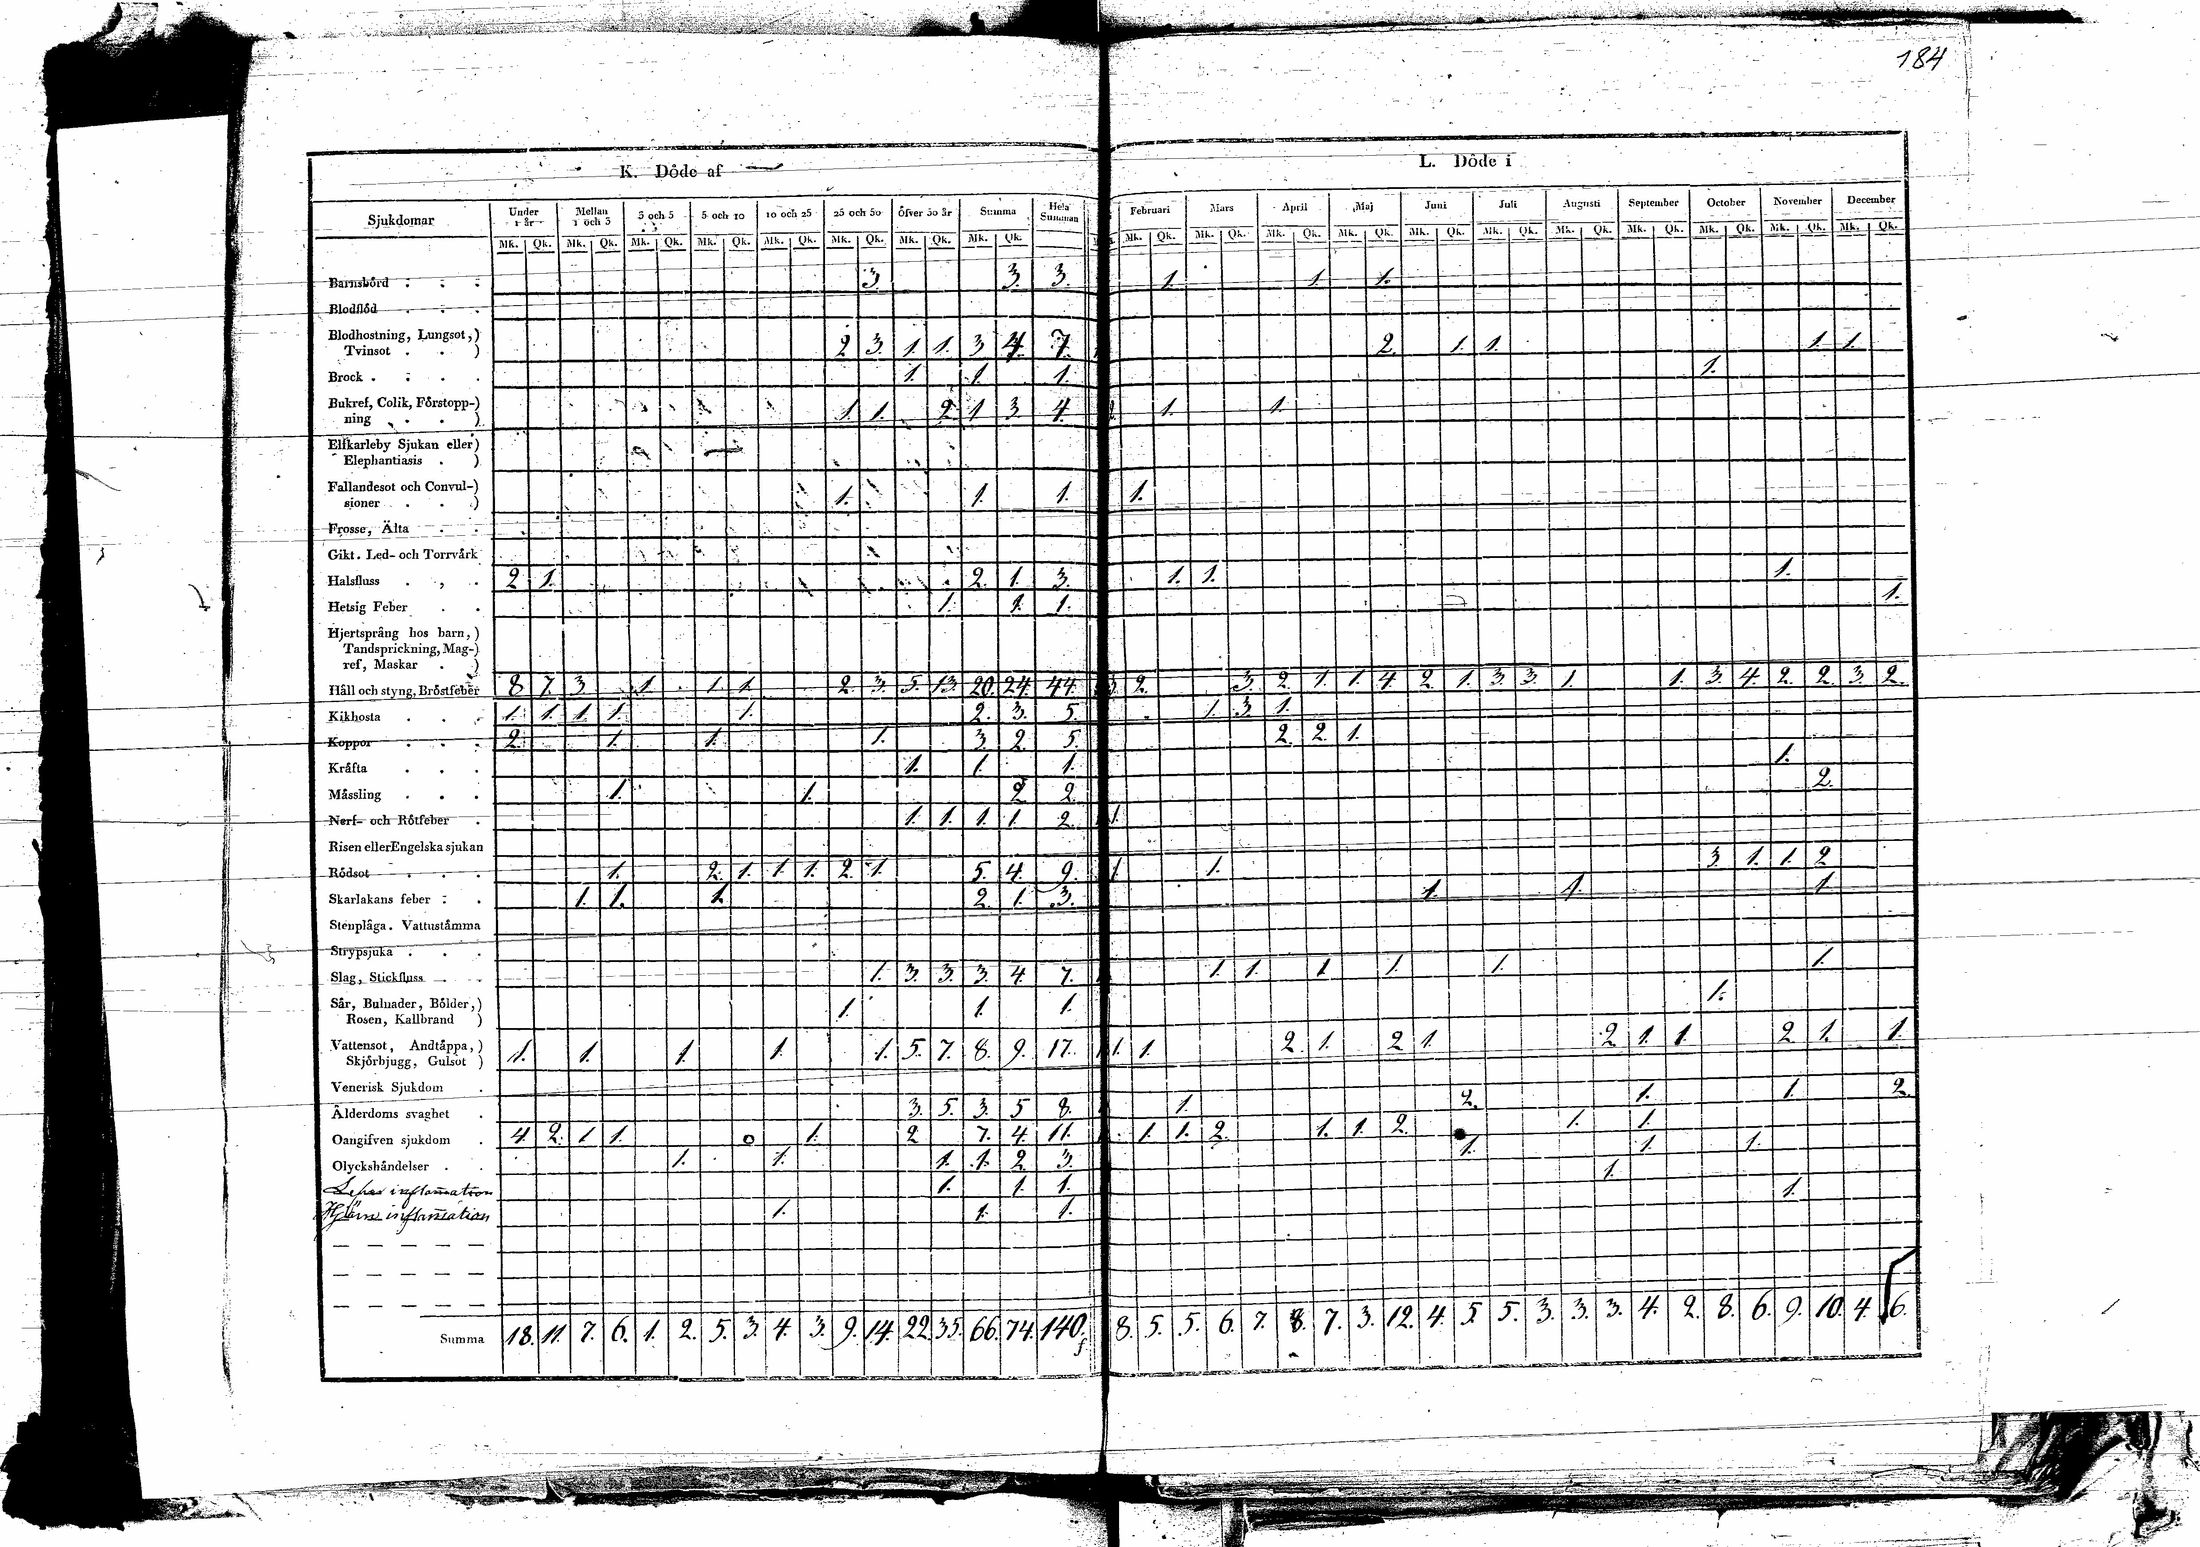 184
K. Döde af
L. Döde i
Sjukdomar Under 1 år Mellan 1 och 3 3 och 5 5 och 10 10 och 25 25 och 50 Öfver 50 år Summa Hela Summan Februari Mars April Maj Juni Juli Augusti September October November December
Mk. Qk. Mk. Qk. Mk. Qk. Mk. Qk. Mk. Qk. Mk. Qk. Mk. Qk. Mk. Qk. Mk. Qk. Mk. Qk. Mk. Qk. Mk. Qk. Mk. Qk. Mk. Qk. Mk. Qk. Mk. Qk. Mk. Qk. Mk. Qk. Mk. Qk.
Barnsbörd . . . 3. 3. 3. 1 1 1.
Blodflöd . . .
Blodhostning, Lungsot,)
Tvinsot . . ) 2 3. 1. 1. 3 4. 7. 2. 1. 1. 1. 1.
Brock . . . . 1. 1. 1. 1.
Bukref, Colik, Förstopp-)
ning . . . ) 1. 1. 2 1 3 4. 1. 1.
Elfkarleby Sjukan eller)
Elephantiasis . )
Fallandesot och Convul-)
sioner . . ) 1. 1. 1. 1.
Frosse, Älta . .
Gikt. Led- och Torrvärk
Halsfluss . , . 2 1. 2. 1. 3. 1. 1. 1.
Hetsig Feber . . 1. 1. 1. 1.
Hjertsprång hos barn,)
Tandsprickning, Mag-)
ref, Maskar . )
Håll och styng, Bröstfeber 8 7. 3 1. 1. 1. 2. 3. 5. 13. 20. 24. 44. 3 2. 3. 2. 1. 1. 4. 2. 1. 3. 3. 1. 1. 3. 4. 2. 2. 3. 2.
Kikhosta . . . 1. 1. 1. 1. 1. 2. 3. 5. 1. 3. 1.
Koppor . . . 2. 1. 1. 1. 3. 2. 5. 2. 2. 1.
Kräfta . . . 1. 1. 1. 1.
Mässling . . . 1. 1. 2 2. 2.
Nerf- och Rötfeber . 1. 1. 1. 1. 2. 1
Risen eller Engelska sjukan
Rödsot . . . 1. 2. 1. 1. 1. 2. 1. 5. 4. 9. 1 1. 3. 1. 1. 2
Skarlakans feber . . 1. 1. 1. 2. 1. 3. 1. 1 1
Stenplåga. Vattustämma
Strypsjuka . . .
Slag, Stickfluss . . 1. 3. 3. 3. 4. 7. 1. 1. 1 1. 1. 1.
Sår, Bulnader, Bölder,)
Rosen, Kallbrand ) 1. 1. 1. 1.
Vattensot, Andtäppa,)
Skjörbjugg, Gulsot ) 1. 1. 1. 1. 1. 5. 7. 8. 9. 17. 1. 1. 2. 1. 2 1. 2. 1. 1. 2 1. 1.
Venerisk Sjukdom .
Ålderdoms svaghet . 3. 5. 3. 5 8. 1. 2. 1. 1. 2.
Oangifven sjukdom . 4. 2. 1 1. 0 1. 2 7. 4. 11. 1. 1. 2. 1. 1. 2. 1. 1.
Olyckshändelser . . 1. 1. 1. 1. 2. 3. 1. 1. 1.
Lefver inflammation 1. 1. 1. 1.
Hjärn inflammation 1. 1. 1. 1.
Summa 18. 11. 7. 6. 1. 2. 5. 3. 4. 3. 9. 14. 22. 35. 66. 74. 140. 8. 5. 5. 6. 7. 8. 7. 3. 12. 4. 5. 5. 3. 3. 3. 4. 2. 8. 6. 9. 10. 4. 6.